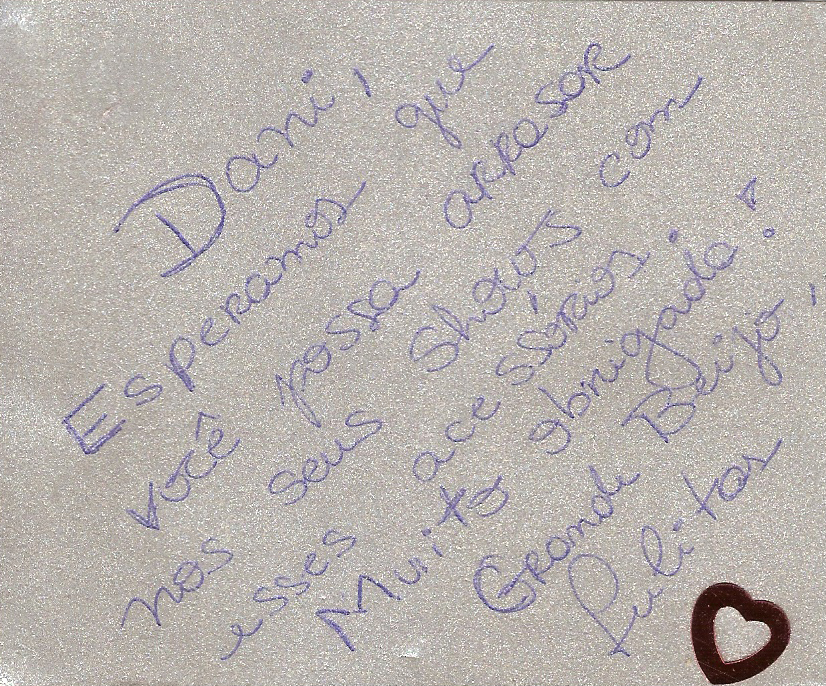 Dani,
Esperamos que
você possa arrasar
nos seus shows com
esses acessórios.
Muito obrigada!
Grande Beijo,